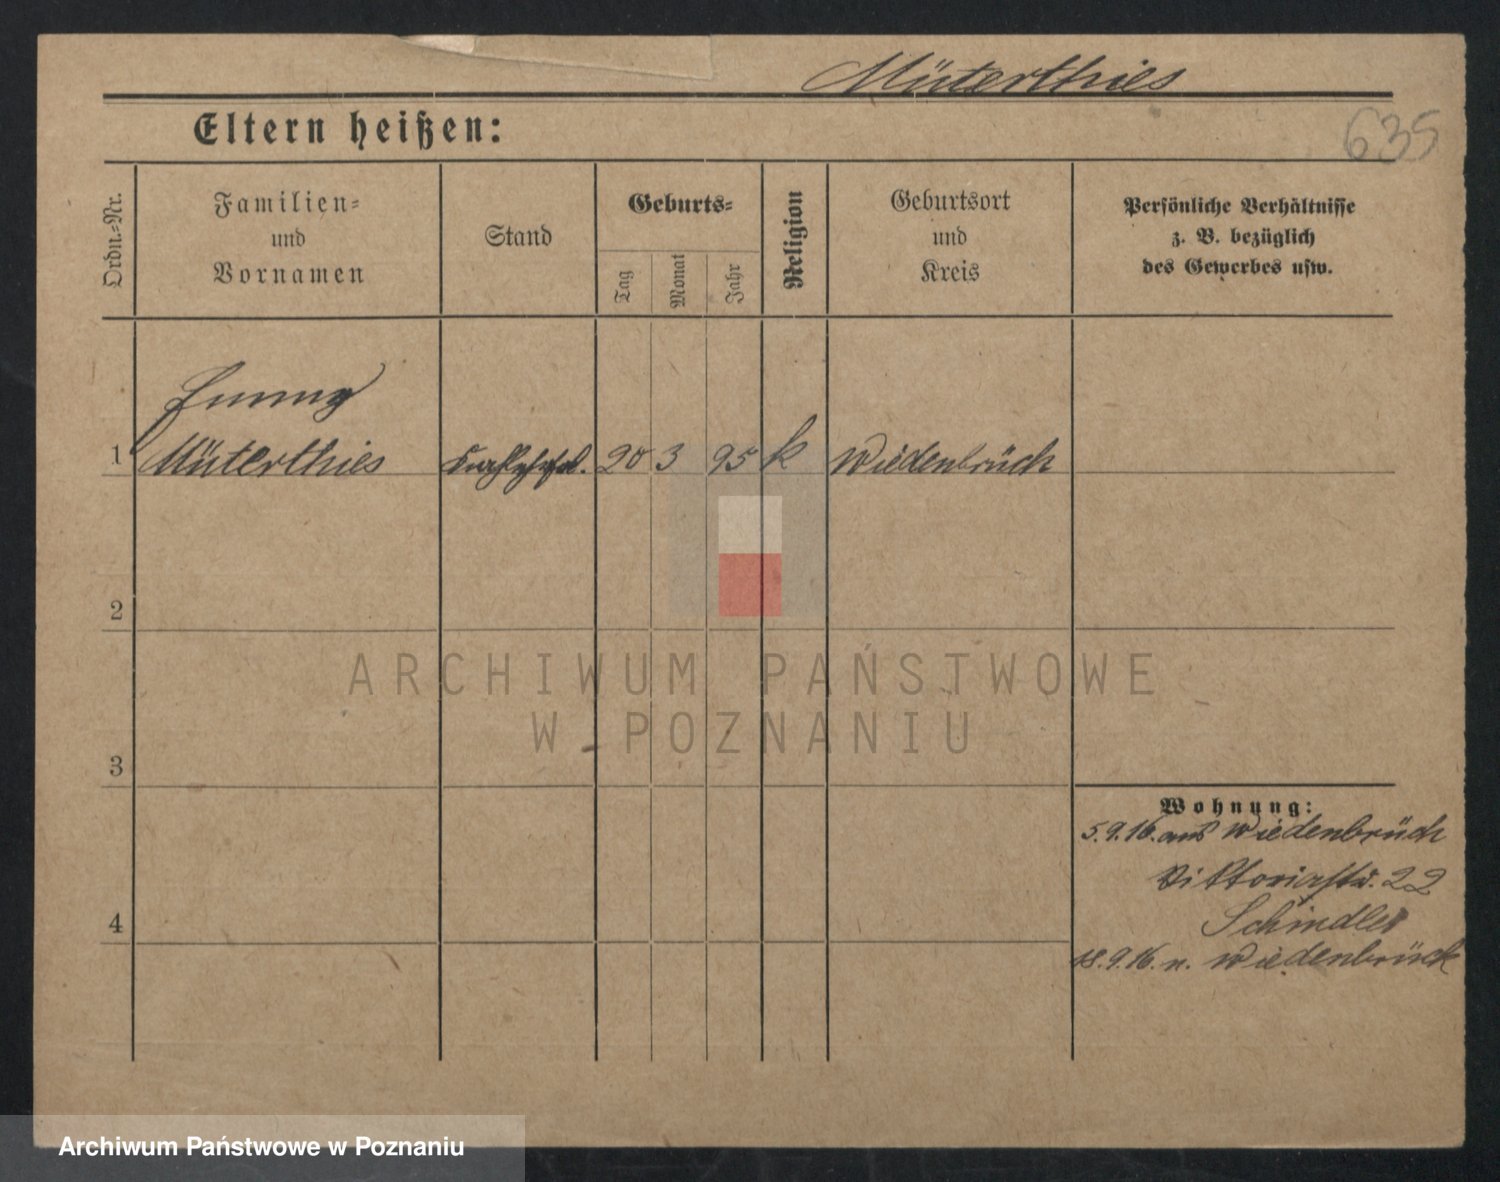 Müterthies
635
Eltern heißen:
Ordn.-Nr.
Familien-
und
Vornamen
Stand
Geburts-
Tag
Monat
Jahr
Religion
Geburtsort
und
Kreis
Persönliche Verhältnisse
z. B. bezüglich
des Gewerbes usw.
1
Müterthies
20 3 95 k Wiedenbrück
2
ARCHIWUM PAŃSTWOWE
W POZNANIU
3
Wohnung:
5.9.16. aus Wiedenbrück
Viktoriastr. 22
Schindler
4
18.9.16. n. Wiedenbrück
Archiwum Państwowe w Poznaniu